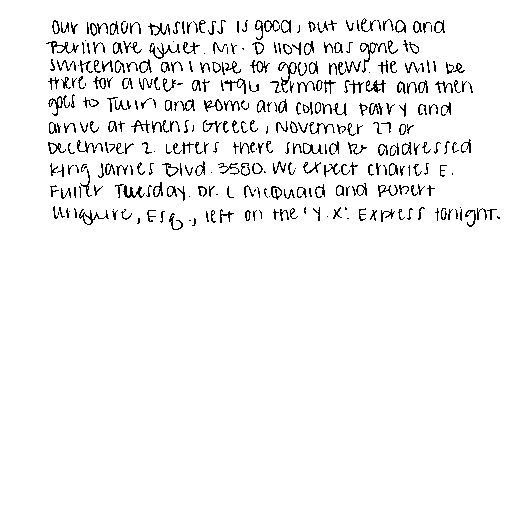 our london business is good, but vienna and
Berlin are quiet. Mr. D lloyd has gone to
Switzerland an I hope for good news. He will be
there for a week at 1496 zermott street and then
goes to Turin and Rome and colonel parry and
arrive at Athens, Greece, November 27 or
December 2. Letters there should be addressed
King James Blvd. 3580. We expect charles E.
Fuller Tuesday. Dr. L McQuaid and Robert
Unquire, Esq., left on the 'Y.X'. Express tonight.